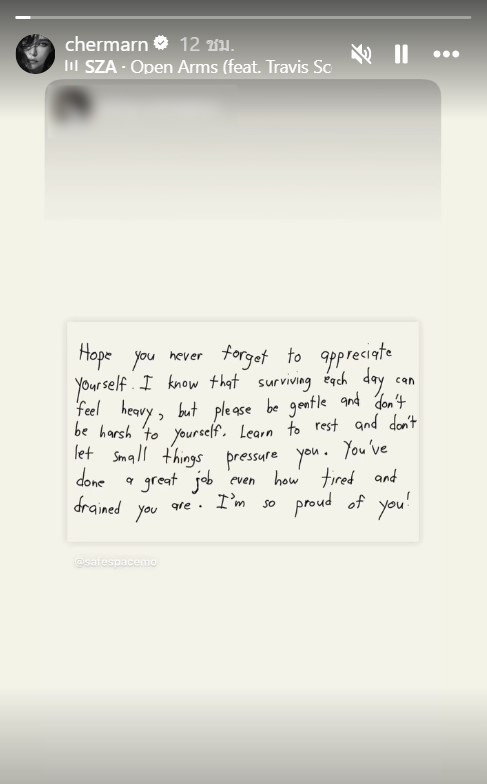 chermarn 12 ชม.
SZA · Open Arms (feat. Travis Sc
Hope you never forget to appreciate
yourself. I know that surviving each day can
feel heavy, but please be gentle and don't
be harsh to yourself. Learn to rest and don't
let small things pressure you. You've
done a great job even how tired and
drained you are. I'm so proud of you!